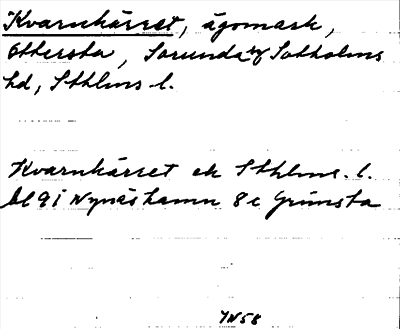 Kvarnkärret, ägomark,
Ottersta, Sorunda sn, Sotholms
hd, Sthlms l.
Kvarnkärret ek Sthlms. l.
bl 91 Nynäshamn 8 c Grimsta
IN58